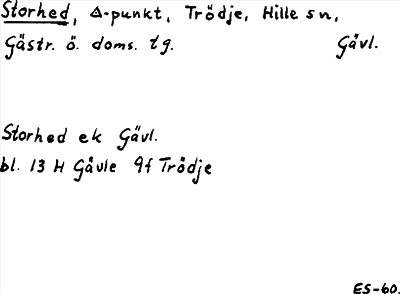 Storhed, ∆-punkt, Trödje, Hille sn,
Gästr. ö. doms. tg. Gävl.
Storhed ek Gävl.
bl. 13 H Gävle 9f Trödje
ES-60.